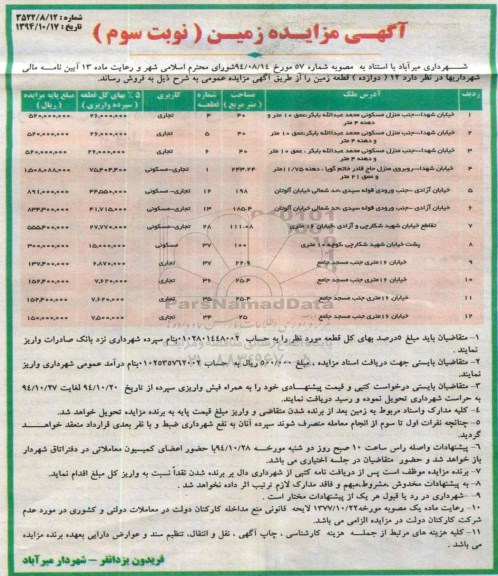 شماره : ۳۵۲۲/۸/۱۲
تاریخ : ۱۳۹۴/۱۰/۱۷
آگهـی مزایـده زمیـن ( نوبت سوم )
شـهرداری میرآباد با استناد به مصوبه شماره ۵۷ مورخ ۹۴/۰۸/۱۴شورای محترم اسلامی شهر و رعایت ماده ۱۳ آیین نامـه مالی
شهرداریها در نظر دارد ۱۲ ( دوازده ) قطعه زمین را از طریق آگهی مزایده عمومی به شرح ذیل به فروش رساند.
ردیف آدرس ملک مساحت ( متر مربع ) شماره قطعـه کاربری ۵٪ بهای کل قطعه ( سپرده واریزی ) مبلغ پایه مزایده ( ریال )
۱ خیابان شهدا--جنب منزل مسکونی محمد عبدالله بابکر ،عمق ۱۰ متر و دهنه ۴ متر ۴۰ ۴ تجاری ۲۶,۰۰۰,۰۰۰ ۵۲۰,۰۰۰,۰۰۰
۲ خیابان شهدا--جنب منزل مسکونی محمد عبدالله بابکر،عمق ۱۰ متر و دهنه ۴ متر ۴۰ ۵ تجاری ۲۶,۰۰۰,۰۰۰ ۵۲۰,۰۰۰,۰۰۰
۳ خیابان شهدا--جنب منزل مسکونی محمد عبدالله بابکر ، عمق ۱۰ متر و دهنه ۴ متر ۴۰ ۶ تجاری ۲۶,۰۰۰,۰۰۰ ۵۲۰,۰۰۰,۰۰۰
۴ خیابان شهدا--روبروی منزل حاج قادر خاتم گویا ، دهنه ۱۱/۷۵متر و عمق ۲۱ متر ۲۴۳.۲۴ ۱ تجاری-مسکونی ۷۵,۴۰۴,۴۰۰ ۱,۵۰۸,۰۸۸,۰۰۰
۵ خیابان آزادی -جنب ورودی قوله سیدی ،حد شمالی خیابان آلوتان ۱۹۸ ۱۲ تجاری-مسکونی ۴۴,۵۵۰,۰۰۰ ۸۹۱,۰۰۰,۰۰۰
۶ خیابان آزادی -جنب ورودی قوله سیدی ،حد شمالی خیابان آلوتان ۱۸۵.۴ ۱۳ تجاری-مسکونی ۴۱,۷۱۵,۰۰۰ ۸۳۴,۳۰۰,۰۰۰
۷ تقاطع خیابان شهید شکارچی و آزادی ،خیابان ۱۶ متری ۱۱۱.۰۸ ۲۸ تجاری-مسکونی ۲۷,۷۷۰,۰۰۰ ۵۵۵,۴۰۰,۰۰۰
۸ پشت خیابان شهید شکارچی ،کوچه ۱۰ متری ۱۰۰ ۳۷ مسکونی ۱۵,۰۰۰,۰۰۰ ۳۰۰,۰۰۰,۰۰۰
۹ خیابان ۱۶متری جنب مسجد جامع ۲۲.۹ ۳۷ تجاری ۶,۸۷۰,۰۰۰ ۱۳۷,۴۰۰,۰۰۰
۱۰ خیابان ۱۶متری جنب مسجد جامع ۲۵.۴ ۳۶ تجاری ۷,۶۲۰,۰۰۰ ۱۵۲,۴۰۰,۰۰۰
۱۱ خیابان ۱۶متری جنب مسجد جامع ۲۵.۴ ۳۵ تجاری ۷,۶۲۰,۰۰۰ ۱۵۲,۴۰۰,۰۰۰
۱۲ خیابان ۱۶متری جنب مسجد جامع ۲۵ ۳۴ تجاری ۷,۵۰۰,۰۰۰ ۱۵۰,۰۰۰,۰۰۰
ParsNamadData
۱- متقاضیان باید مبلغ ۵درصد بهای کل قطعه مورد نظر را به حساب ۰۱۰۲۸۰۱۴۴۸۰۰۲بنام سپرده شهرداری نزد بانک صادرات واریز
نمایند .
۲- متقاضیان بایستی جهت دریافت اسناد مزایده ، مبلغ ۵۰۰/۰۰۰ ریال به حساب ۰۱۰۲۵۳۵۷۶۲۰۰۹بنام درآمد عمومی شهرداری واریز
نمایند.
۳- متقاضیان بایستی درخواست کتبی و قیمت پیشنهـادی خود را به همراه فیش واریزی سپرده از تاریخ ۹۴/۱۰/۲۰ لغایت ۹۴/۱۰/۲۷
به حراست شهرداری تحویل نموده و رسید دریافت نمایند.
۴- کلیه مدارک واسناد مربوط به زمین بعد از برنده شدن متقاضی و واریز مبلغ قیمت پایه به برنده مزایده تحویل خواهد شد.
۵- چنانچه نفرات اول تا سوم از انجام معامله منصرف شوند سپرده آنان به نفع شهرداری ضبط و با نفر بعدی قرارداد منعقد خواهـد
گردید.
۶- پیشنهادات واصله راس ساعت ۱۰ صبح روز دو شنبه مورخـه ۹۴/۱۰/۲۸با حضور اعضای کمیسیون معاملاتی در دفتراتاق شهردار
باز خواهد شد و حضور متقاضیان در جلسه اختیاری می باشد.
۷- برنده مزایده موظف است پس از دریافت نامه کتبی از شهرداری دال بر برنده شدن نقداً نسبت به واریز کل مبلغ اقدام نماید.
۸- به پیشنهادات مخدوش ،مشروط،مبهم و فاقد مدارک لازم ترتیب اثر داده نخواهد شد .
۹- شهرداری در رد یا قبول هر یک از پیشنهادات مختار است .
۱۰- رعایت ماده یک مصوبه مورخه۱۳۷۷/۱۰/۲۲ لایحه قانونی منع مداخله کارکنان دولت در معاملات دولتی و کشوری در مورد عدم
شرکت کارکنان دولت در مزایده الزامی می باشد.
۱۱- کلیه هزینه های مرتبط از جملـه هزینه کارشناسی ، چاپ آگهی ، نقل و انتقال، تنظیم سند و عوارض دارایی بعهده برنده مزایده
می باشد .
فریدون یزدانفر – شهردار میرآباد